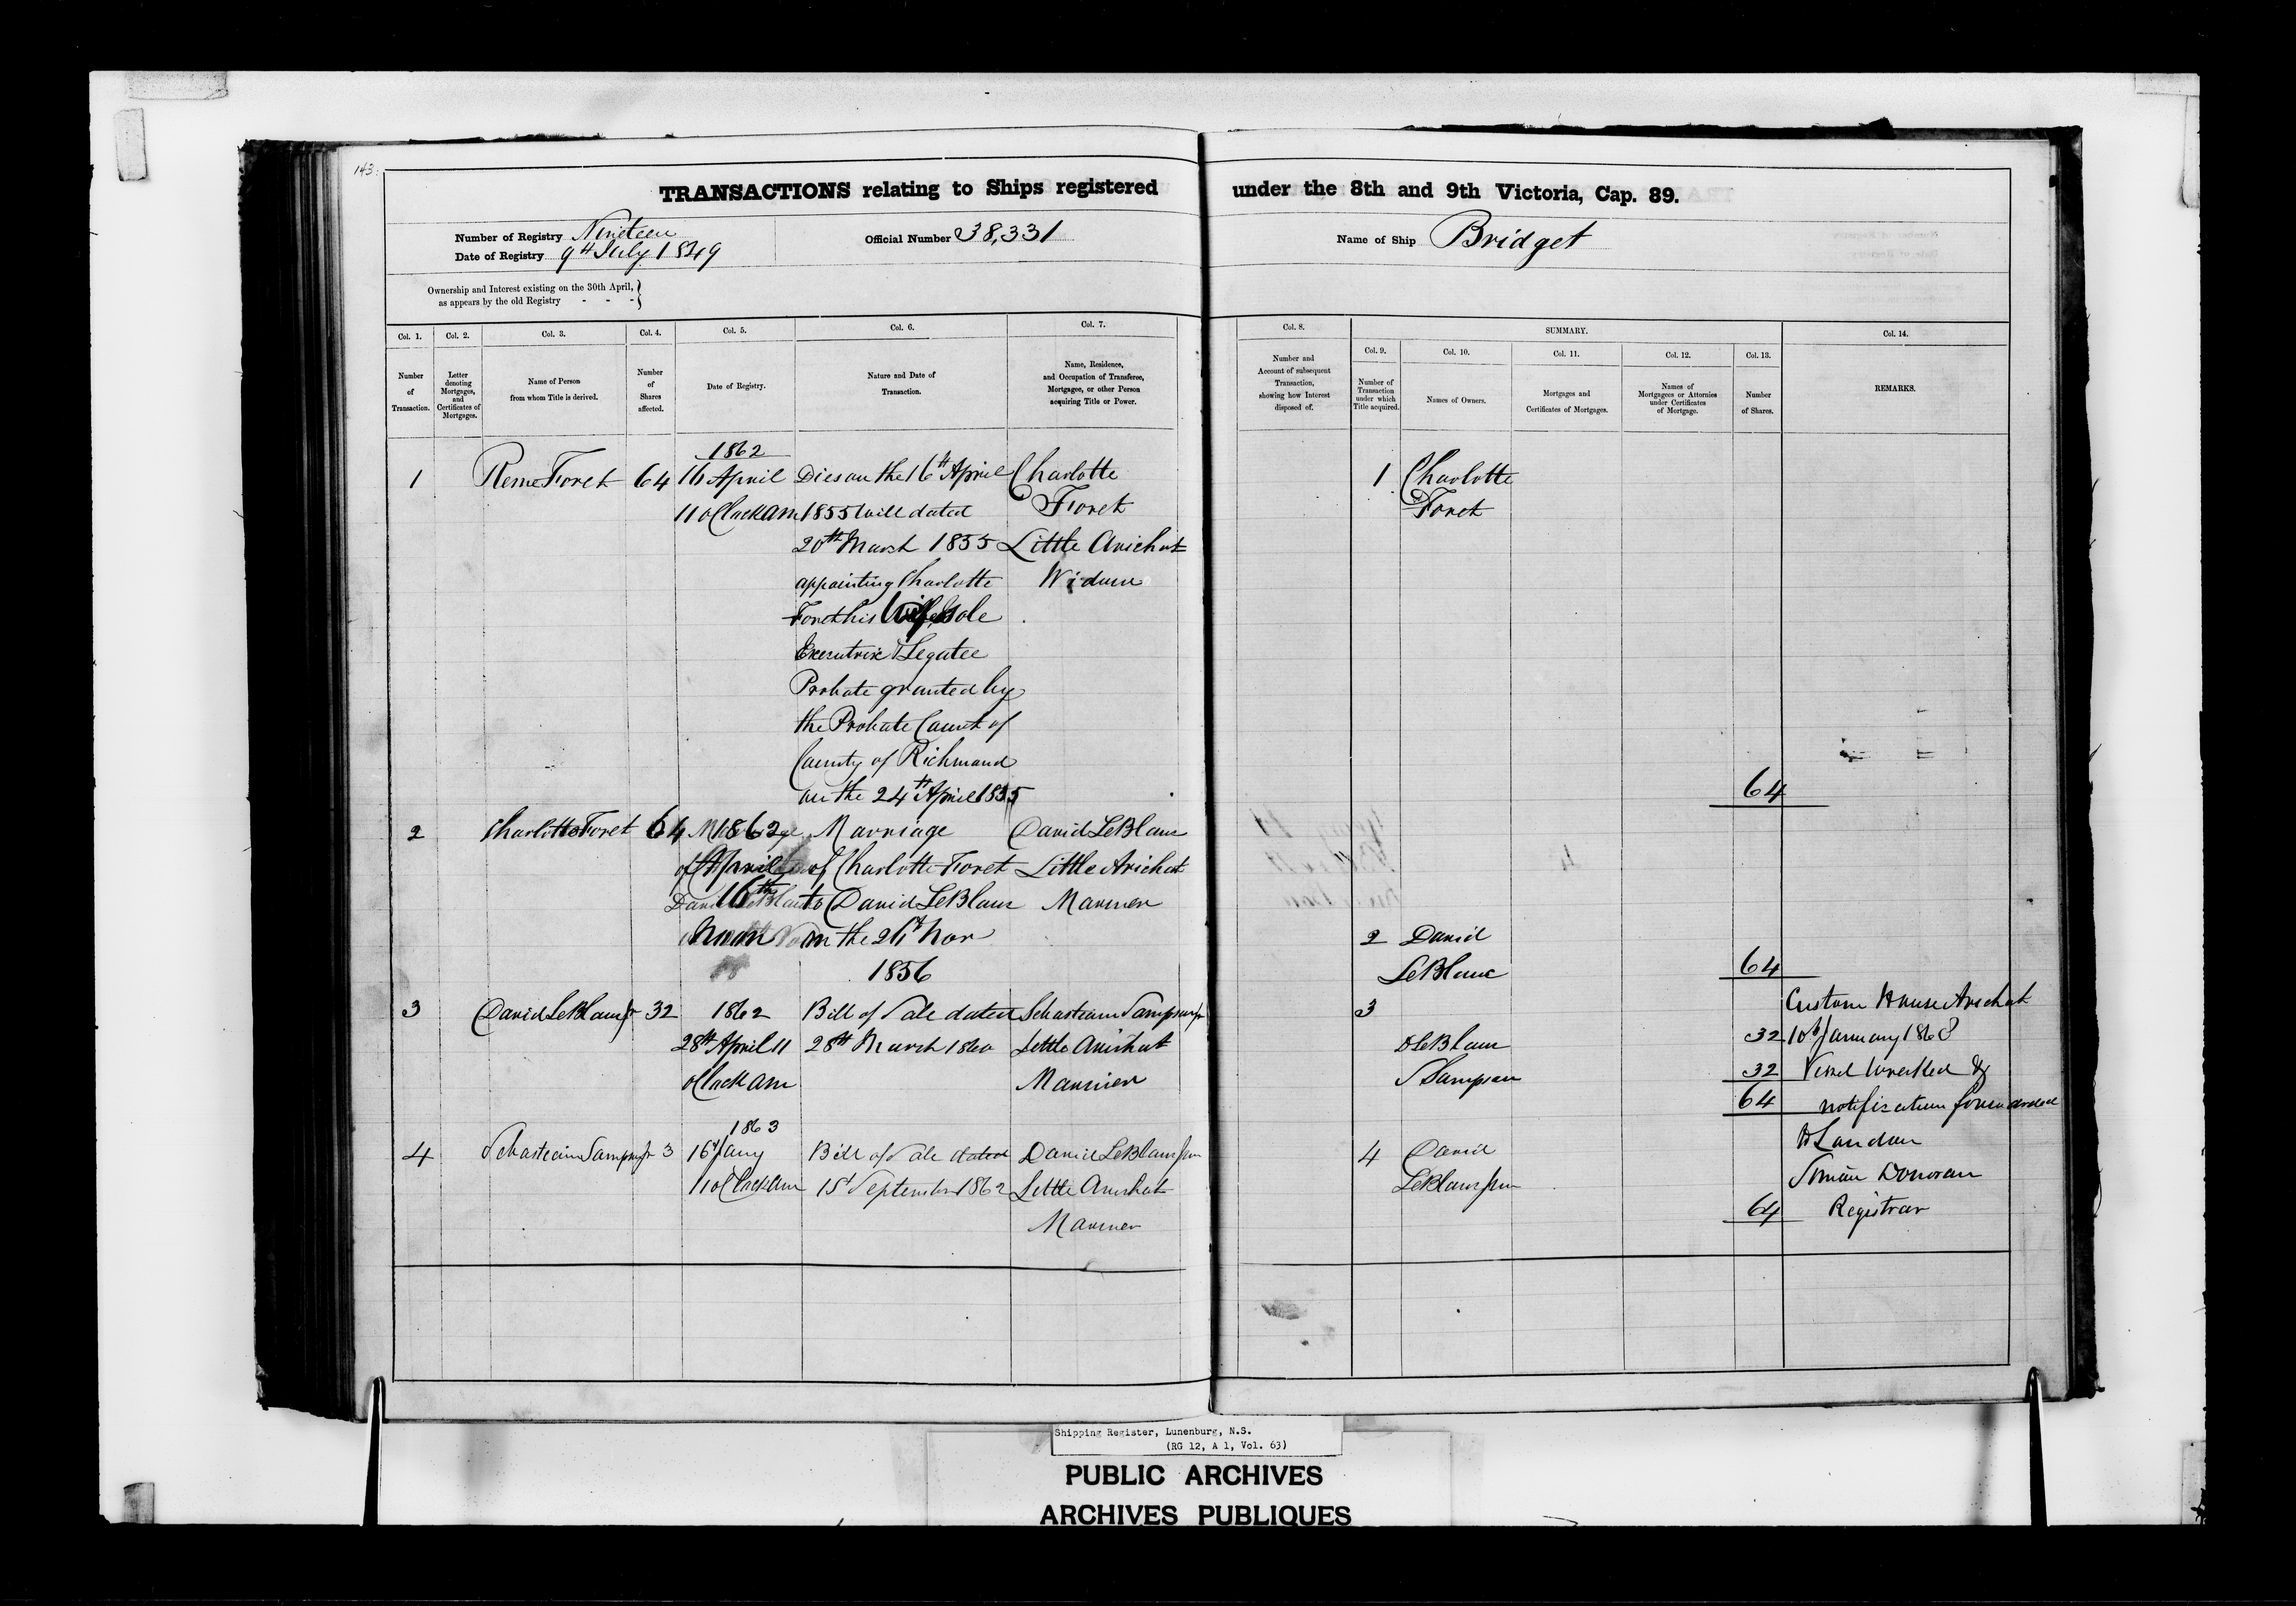 143.
TRANSACTIONS relating to Ships registered under the 8th and 9th Victoria, Cap. 89.
Number of Registry Nineteen
Date of Registry 9th July 1849
Official Number 38,331
Name of Ship Bridget
Ownership and Interest existing on the 30th April,
as appears by the old Registry - - -
Col. 1. Number of Transaction.
Col. 2. Letter denoting Mortgages, and Certificates of Mortgages.
Col. 3. Name of Person from whom Title is derived.
Col. 4. Number of Shares affected.
Col. 5. Date of Registry.
Col. 6. Nature and Date of Transaction.
Col. 7. Name, Residence, and Occupation of Transferee, Mortgagee, or other Person acquiring Title or Power.
Col. 8. Number and Account of subsequent Transaction, showing how Interest disposed of.
SUMMARY.
Col. 9. Number of Transaction under which Title acquired.
Col. 10. Names of Owners.
Col. 11. Mortgages and Certificates of Mortgages.
Col. 12. Names of Mortgagees or Attornies under Certificates of Mortgage.
Col. 13. Number of Shares.
Col. 14. REMARKS.
1862
1 Reme Foret 64 16 April Dies on the 16th April Charlotte
11 oClock am 1855 Will dated Foret
20th March 1855 Little Arichat
appointing Charlotte Widow
Foret his Wife Sole
Executrix & Legatee
Probate granted by
the Probate Court of
County of Richmond
on the 24th April 1855
1 Charlotte
Foret
64
2 Charlotte Foret 64 1862 Marriage David LeBlanc
April of Charlotte Foret Little Arichat
16th to David LeBlanc Mariner
Noon on the 26th Nov
1856
2 David
LeBlanc 64
3 David LeBlanc Jr 32 1862 Bill of Sale dated Sebastian Sampson Jr
28th April 11 28th March 1860 Little Arichat
oClock am Mariner
3
D LeBlanc 32
S Sampson 32
64
Custom House Arichat
10th January 1868
Vessel Wrecked &
notification forwarded
to London
Donovan
Registrar
1863
4 Sebastian Sampson Jr 3 16 Jany Bill of Sale dated David LeBlanc Jun
11 oClock am 1st September 1862 Little Arichat
Mariner
4 David
LeBlanc Jun
64
Shipping Register, Lunenburg, N.S.
(RG 12, A 1, Vol. 63)
PUBLIC ARCHIVES
ARCHIVES PUBLIQUES